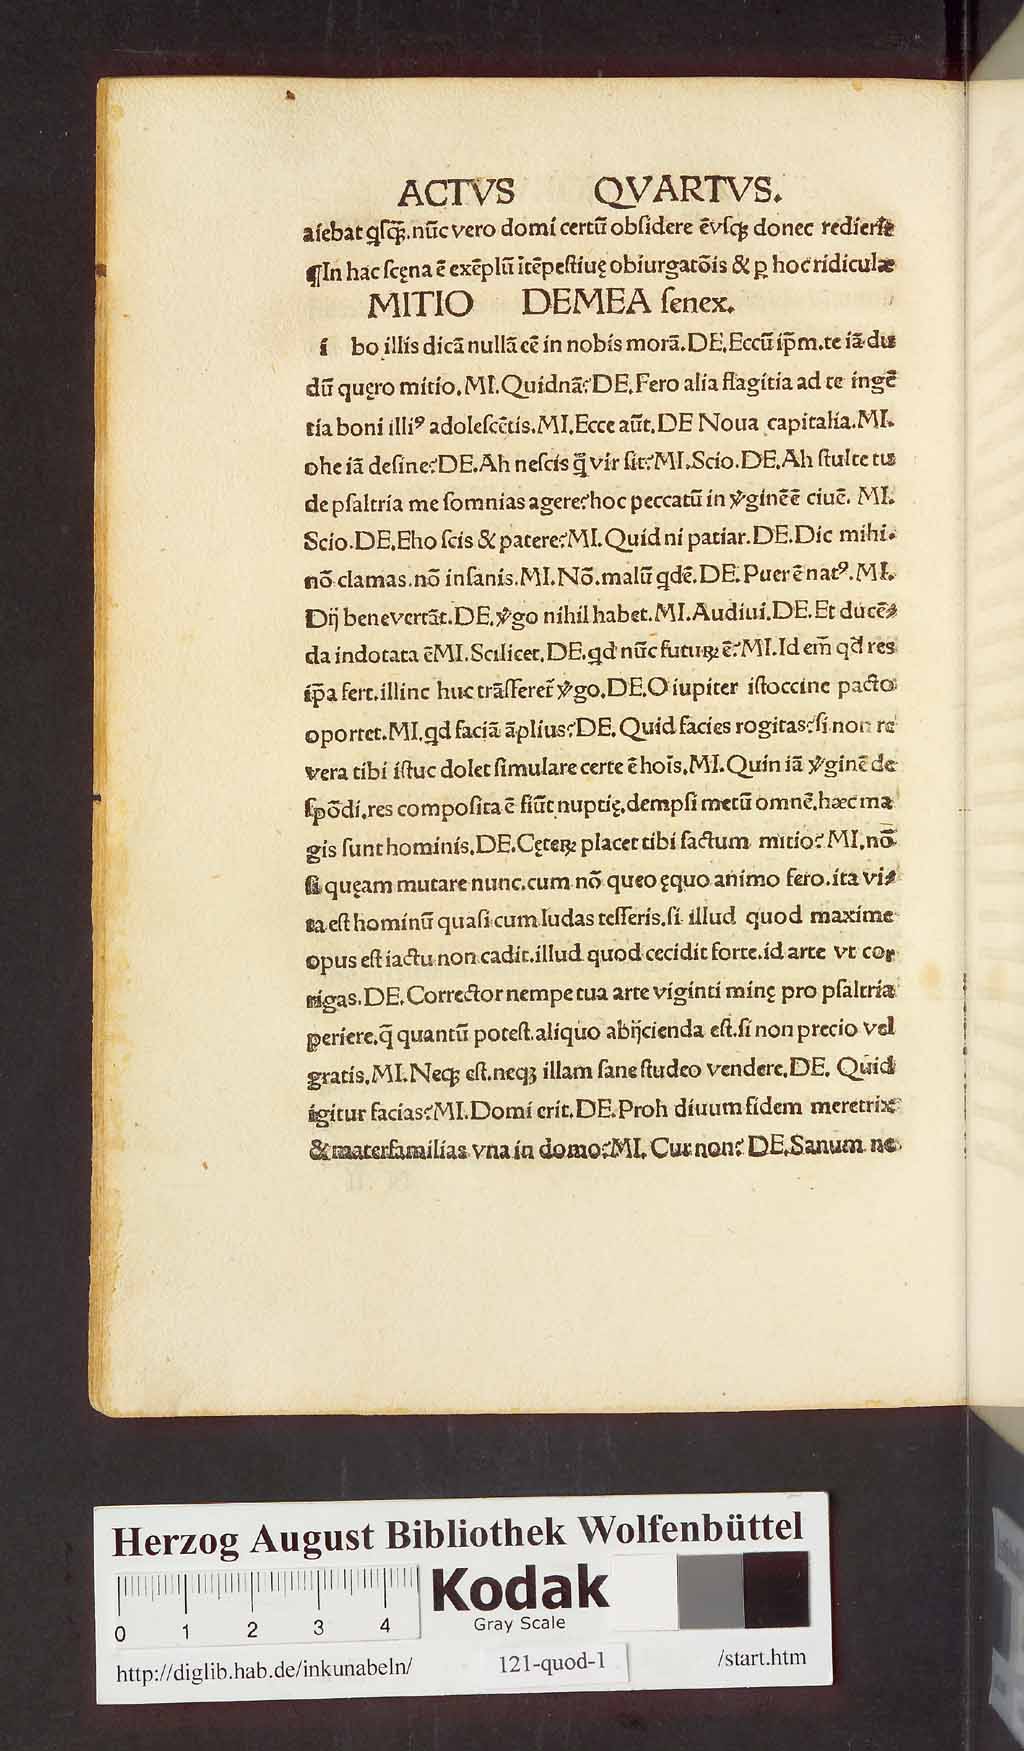 ACTVS QVARTVS.
aiebat qſꝗ̃. nũc vero domi certũ obſidere ẽvſqꝫ donec redierit
¶In hac ſcęna ẽ exẽplũ ĩtẽpeſtiuę obiurgatõis & ꝑ hoc ridiculæ
MITIO DEMEA ſenex.
i bo illis dicã nullã eẽ in nobis morã. DE. Eccũ ip̃m. te iã du
dũ quęro mitio. MI. Quidnã? DE. Fero alia flagitia ad te ingẽ
tia boni illiꝰ adoleſcẽtis. MI. Ecce aũt. DE Noua capitalia. MI.
ohe iã deſine? DE. Ah neſcis q̃ vir ſit? MI. Scio. DE. Ah ſtulte tu
de pſaltria me ſomnias agere? hoc peccatũ in ṽginẽ ẽ ciuẽ. MI.
Scio. DE. Eho ſcis & patere? MI. Quid ni patiar. DE. Dic mihi.
nõ clamas. nõ inſanis. MI. Nõ. malũ qdẽ. DE. Puer ẽ natꝰ. MI.
Dij bene vertãt. DE. ṽgo nihil habet. MI. Audiui. DE. Et ducẽ⸗
da indotata ẽ MI. Scilicet. DE. qd nũc futuꝝ ẽ? MI. Id em̃ qd̓ res
ip̃a fert. illinc huc trãſferet̃ ṽgo. DE. O iupiter iſtoccine pacto
oportet. MI. qd faciã ãplius? DE. Quid facies rogitas? ſi non re
vera tibi iſtuc dolet ſimulare certe ẽ hoĩs. MI. Quin iã ṽginẽ de
ſpõdi. res compoſita ẽ fiũt nuptię. dempſi metũ omnẽ. hæc ma
gis ſunt hominis. DE. Cęteꝝ placet tibi factum mitio? MI. nõ
ſi quęam mutare nunc. cum nõ queo ęquo animo fero. ita vi⸗
ta eſt hominũ quaſi cum ludas teſſeris. ſi illud quod maxime
opus eſt iactu non cadit. illud quod cecidit forte. id arte vt cor
rigas. DE. Corrector nempe tua arte viginti minę pro pſaltria
periere. q̃ quantũ poteſt. aliquo abijcienda eſt. ſi non precio vel
gratis. MI. Neqꝫ eſt. neqꝫ illam ſane ſtudeo vendere. DE. Quid
igitur facias? MI. Domi erit. DE. Proh diuum fidem meretrix
& materfamilias vna in domo? MI. Cur non? DE. Sanum ne
Herzog August Bibliothek Wolfenbüttel
0 1 2 3 4
Kodak
Gray Scale
http://diglib.hab.de/inkunabeln/ 121-quod-1 /start.htm